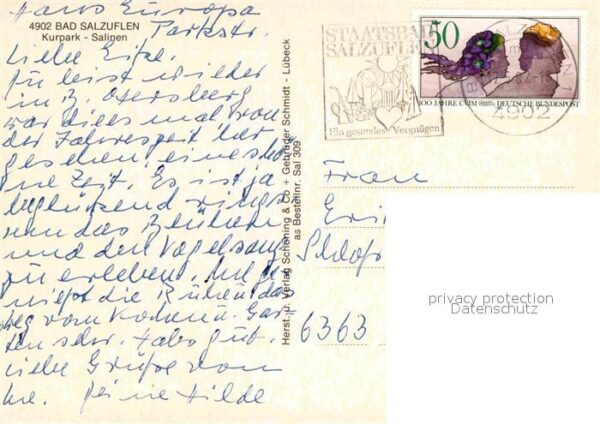 Haus Europa
Parkstr.
4902 BAD SALZUFLEN
Kurpark - Salinen
Liebe
in B.
war dies mal von
der Jahreszeit her
gesehen, eine schö
ne Zeit. Es ist ja
beglückend rings
um das Blühen
und den Vogelsang
zu erleben.
die Ruhe
weg vom Kochen u. Gar-
ten sehr. Habs gut.
Liebe Grüße von
Deine Hilde
Herst. u. Verlag Schöning & Co + Gebrüder Schmidt - Lübeck
as Bestellnr. Sal 309
STAATSBAD
SALZUFLEN
Ein gesundes Vergnügen
50
100 JAHRE CVJM DEUTSCHE BUNDESPOST
4902
Frau
Eri
Schloß
6363
privacy protection
Datenschutz